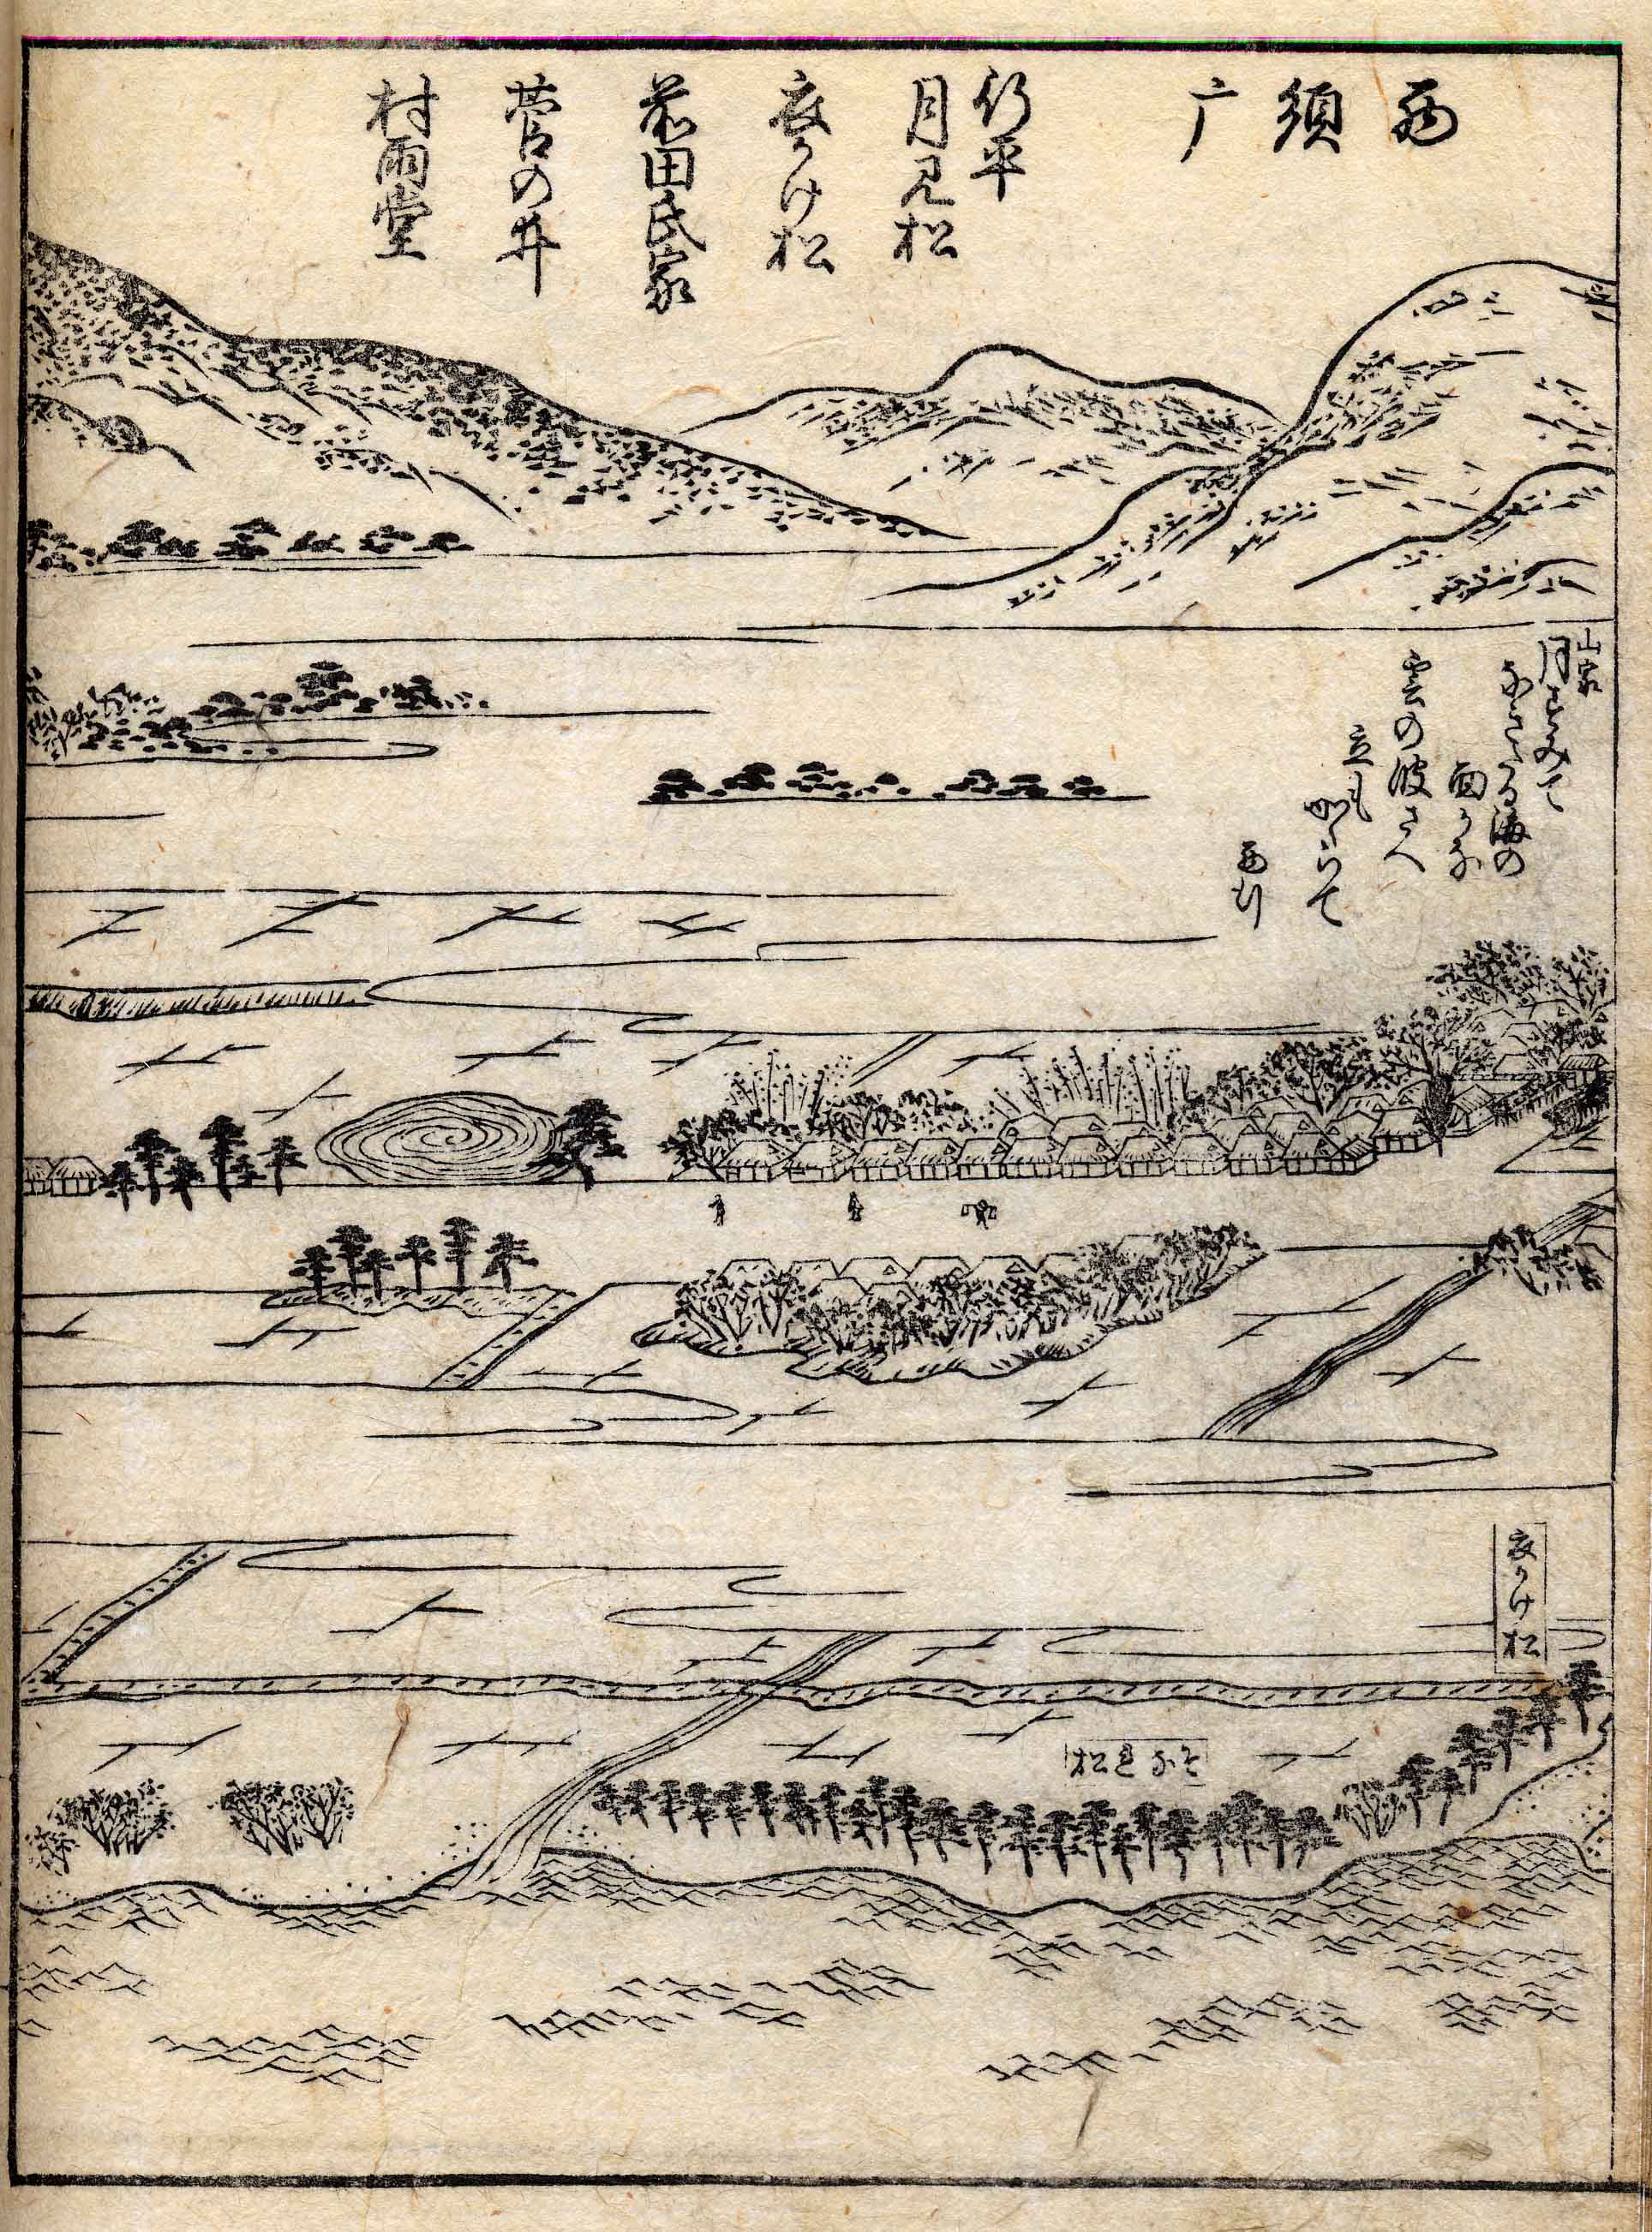 西須广
行平
月見松
衣かけ松
前田氏家
菅の井
村雨堂
山家
月すみて
なきたる海の
面かな
雲の波さへ
立もかゝらて
西行
衣かけ松
いそなれ松